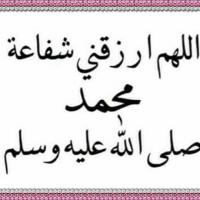 اللهم ارزقني شفاعة
محمد
صلى الله عليه وسلم